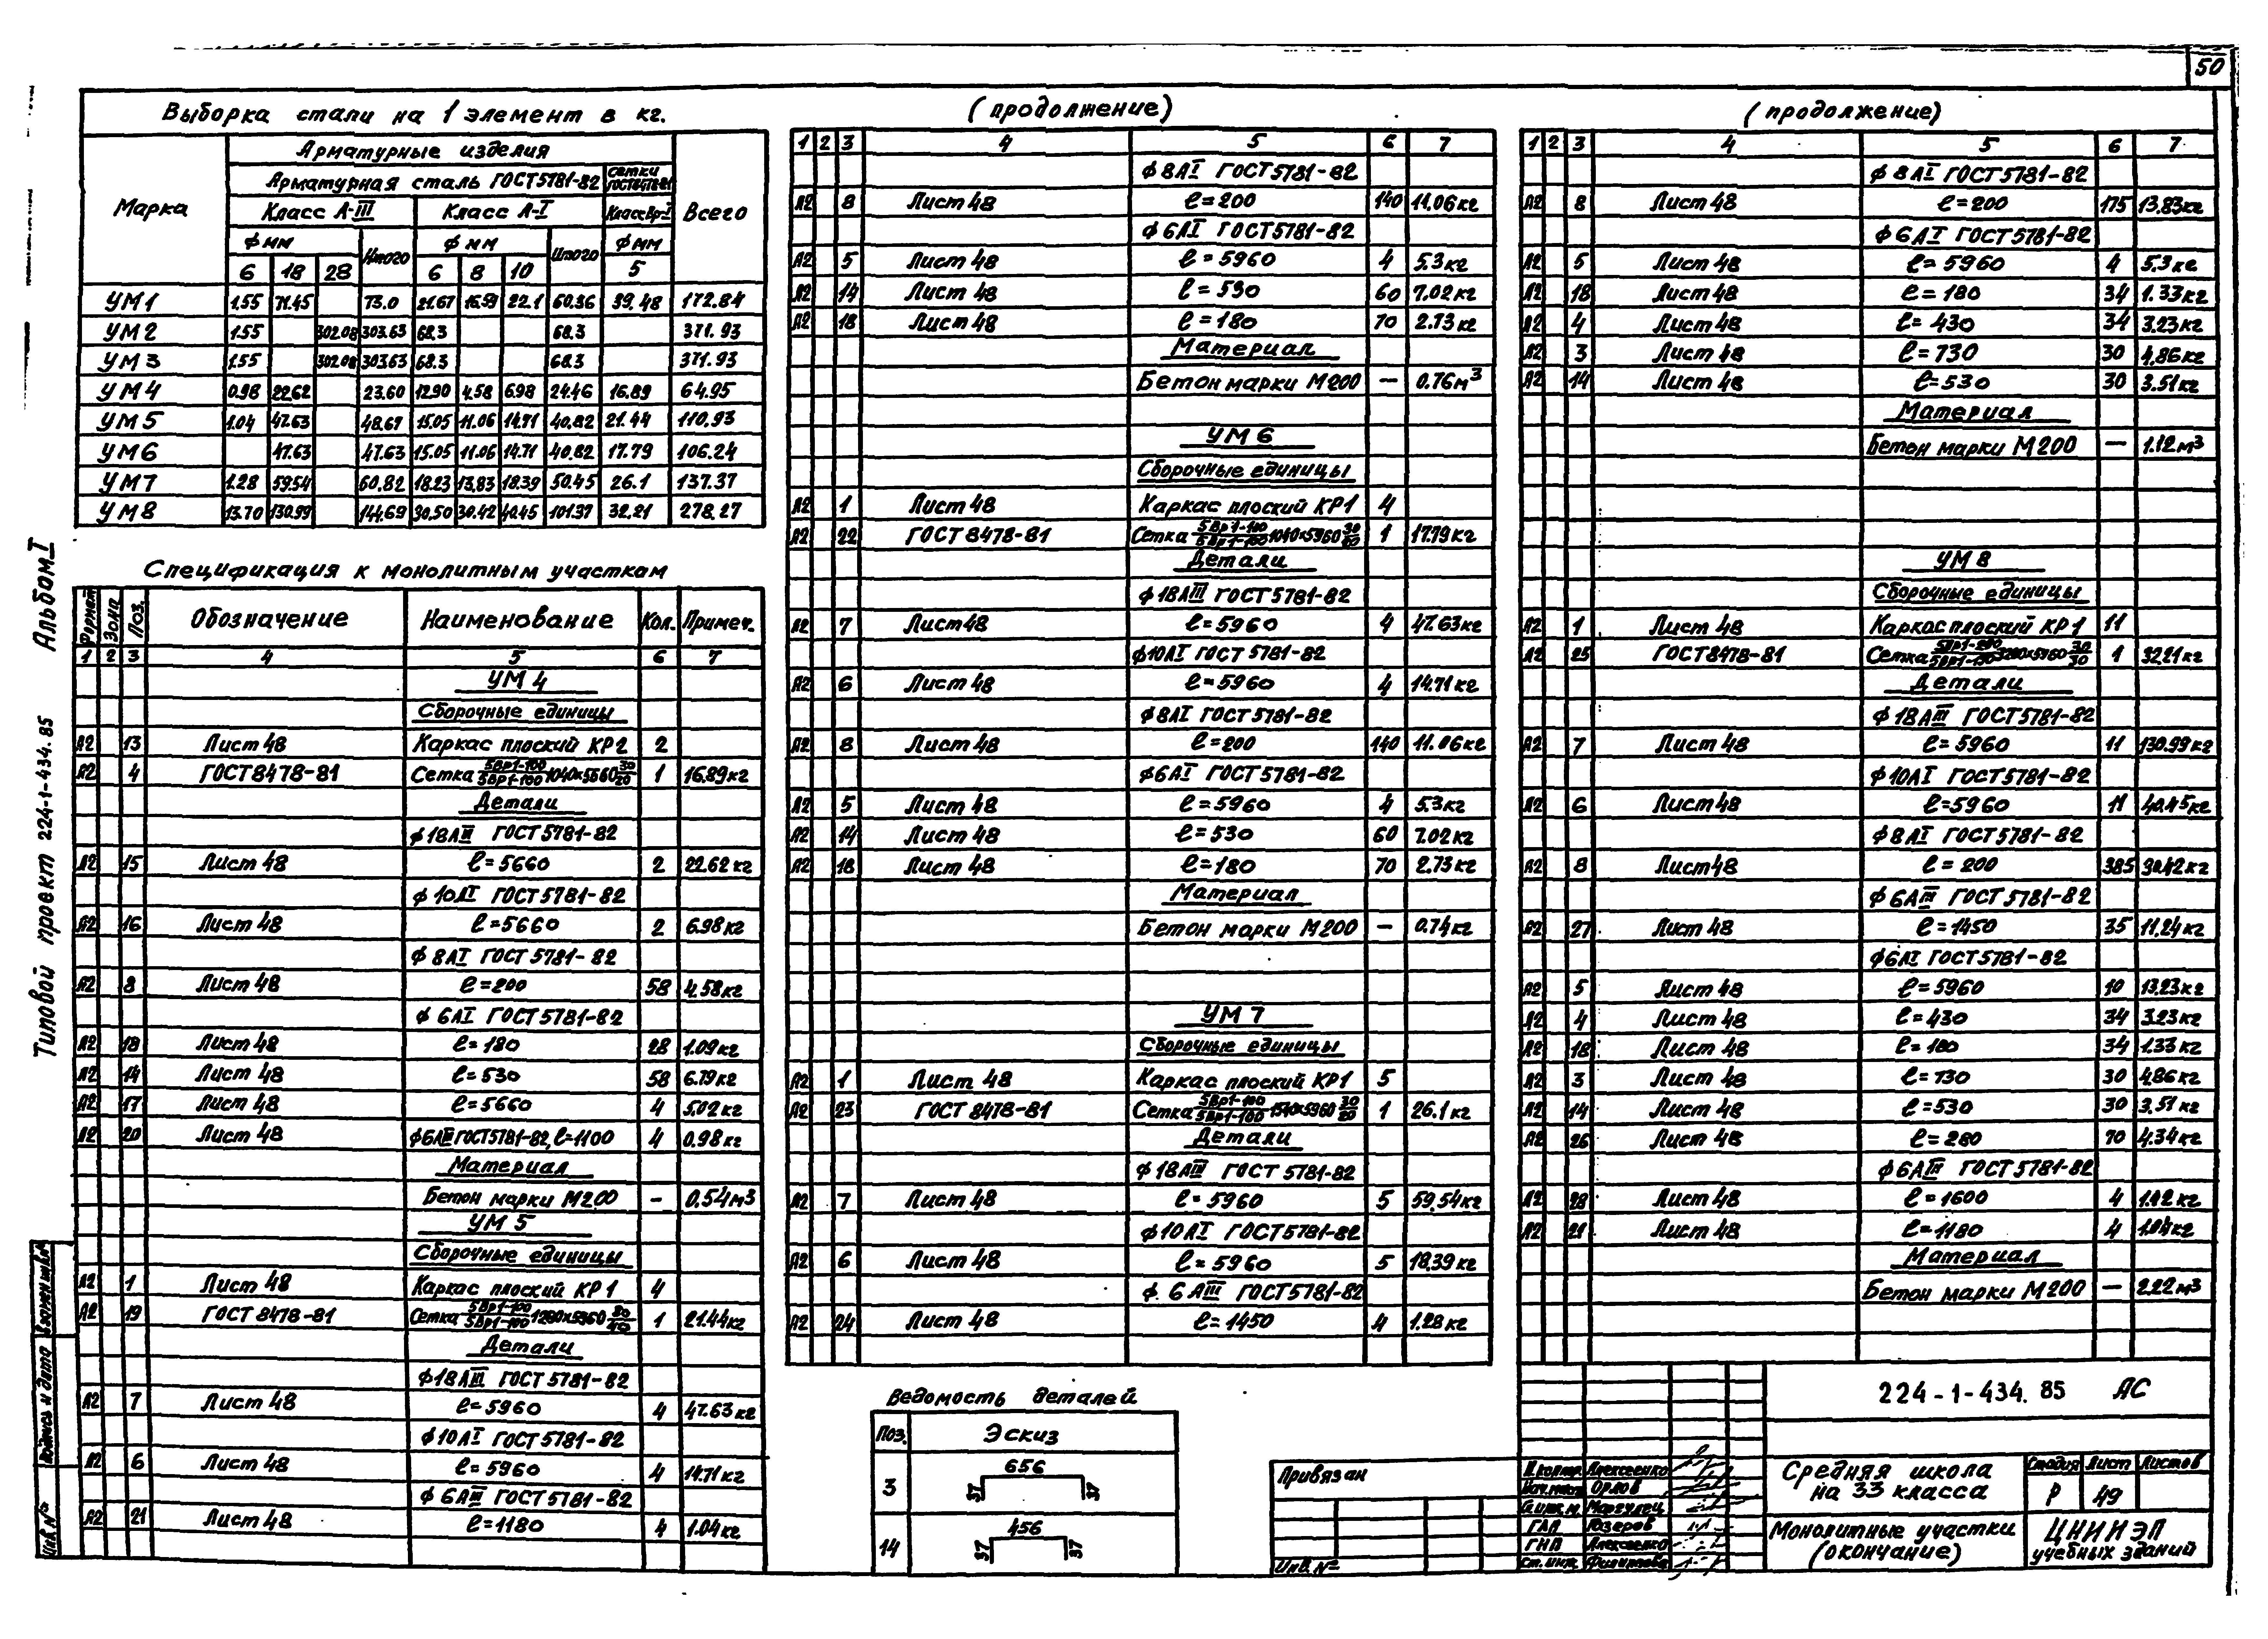 50
Выборка стали на 1 элемент в кг.
Марка
Арматурные изделия
Всего
Арматурная сталь ГОСТ 5781-82
сетки ГОСТ 8478-81
Класс А-III
Класс А-I
Класс Вр-I
ф мм
Итого
ф мм
Итого
ф мм
6 18 28 6 8 10 5
УМ1 1.55 71.45 73.0 21.67 16.59 22.1 60.36 39.48 172.84
УМ2 1.55 302.08 303.63 68.3 68.3 371.93
УМ3 1.55 302.08 303.63 68.3 68.3 371.93
УМ4 0.98 22.62 23.60 12.90 4.58 6.98 24.46 16.89 64.95
УМ5 1.04 47.63 48.67 15.05 11.06 14.71 40.82 21.44 110.93
УМ6 47.63 47.63 15.05 11.06 14.71 40.82 17.79 106.24
УМ7 1.28 59.54 60.82 18.23 13.83 18.39 50.45 26.1 137.37
УМ8 13.70 130.99 144.69 30.50 30.42 40.45 101.37 32.21 278.27
Спецификация к монолитным участкам
Формат Зона Поз. Обозначение Наименование Кол. Примеч.
1 2 3 4 5 6 7
УМ 4
Сборочные единицы
А2 13 Лист 48 Каркас плоский КР2 2
А2 4 ГОСТ 8478-81 Сетка 5Вр1-100/5Вр1-100 1040х5660 30/20 1 16.89кг
Детали
ф 18АIII ГОСТ 5781-82
А2 15 Лист 48 ℓ=5660 2 22.62 кг
ф 10АI ГОСТ 5781-82
А2 16 Лист 48 ℓ=5660 2 6.98кг
ф 8АI ГОСТ 5781-82
А2 8 Лист 48 ℓ=200 58 4.58кг
ф 6АI ГОСТ 5781-82
А2 18 Лист 48 ℓ=180 28 1.09кг
А2 14 Лист 48 ℓ=530 58 6.79кг
А2 17 Лист 48 ℓ=5660 4 5.02кг
А2 20 Лист 48 ф6АIII ГОСТ 5781-82, ℓ=1100 4 0.98кг
Материал
Бетон марки М200 - 0.54м3
УМ 5
Сборочные единицы
А2 1 Лист 48 Каркас плоский КР1 4
А2 19 ГОСТ 8478-81 Сетка 5Вр1-100/5Вр1-100 1280х5960 1 21.44кг
Детали
ф18АIII ГОСТ 5781-82
А2 7 Лист 48 ℓ=5960 4 47.63 кг
ф 10АI ГОСТ 5781-82
А2 6 Лист 48 ℓ=5960 4 14.71 кг
ф 6АIII ГОСТ 5781-82
А2 21 Лист 48 ℓ=1180 4 1.04кг
(продолжение)
1 2 3 4 5 6 7
ф 8АI ГОСТ 5781-82
А2 8 Лист 48 ℓ=200 140 11.06кг
ф 6АI ГОСТ 5781-82
А2 5 Лист 48 ℓ=5960 4 5.3кг
А2 14 Лист 48 ℓ=530 60 7.02кг
А2 18 Лист 48 ℓ=180 70 2.73 кг
Материал
Бетон марки М200 — 0.76м3
УМ 6
Сборочные единицы
А2 1 Лист 48 Каркас плоский КР1 4
А2 22 ГОСТ 8478-81 Сетка 5Вр1-100/5Вр1-100 1040х5960 30/60 1 17.79кг
Детали
ф 18АIII ГОСТ 5781-82
А2 7 Лист 48 ℓ=5960 4 47.63кг
ф10АI ГОСТ 5781-82
А2 6 Лист 48 ℓ=5960 4 14.71кг
ф8АI ГОСТ 5781-82
А2 8 Лист 48 ℓ=200 140 11.06кг
ф6АI ГОСТ 5781-82
А2 5 Лист 48 ℓ=5960 4 5.3кг
А2 14 Лист 48 ℓ=530 60 7.02кг
А2 18 Лист 48 ℓ=180 70 2.73кг
Материал
Бетон марки М200 - 0.74кг
УМ 7
Сборочные единицы
А2 1 Лист 48 Каркас плоский КР1 5
А2 23 ГОСТ 8478-81 Сетка 5Вр1-100/5Вр1-100 1540х5960 30/20 1 26.1кг
Детали
ф 18АIII ГОСТ 5781-82
А2 7 Лист 48 ℓ=5960 5 59.54кг
ф10АI ГОСТ 5781-82
А2 6 Лист 48 ℓ=5960 5 18.39кг
ф. 6 АIII ГОСТ 5781-82
А2 24 Лист 48 ℓ=1450 4 1.28кг
(продолжение)
1 2 3 4 5 6 7
ф 8АI ГОСТ 5781-82
А2 8 Лист 48 ℓ=200 175 13.83кг
ф 6АI ГОСТ 5781-82
А2 5 Лист 48 ℓ=5960 4 5.3кг
А2 18 Лист 48 ℓ=180 34 1.33кг
А2 4 Лист 48 ℓ=430 34 3.23кг
А2 3 Лист 48 ℓ=730 30 4.86кг
А2 14 Лист 48 ℓ=530 30 3.51кг
Материал
Бетон марки М200 — 1.12м3
УМ 8
Сборочные единицы
А2 1 Лист 48 Каркас плоский КР1 11
А2 25 ГОСТ 8478-81 Сетка 5Вр1-200/5Вр1-150 3200х5960 30/50 1 32.21кг
Детали
ф 18АIII ГОСТ 5781-82
А2 7 Лист 48 ℓ=5960 11 130.99кг
ф 10АI ГОСТ 5781-82
А2 6 Лист 48 ℓ=5960 11 40.45кг
ф 8АI ГОСТ 5781-82
А2 8 Лист 48 ℓ=200 385 30.42кг
ф 6АIII ГОСТ 5781-82
А2 27 Лист 48 ℓ=1450 35 11.24кг
ф6АI ГОСТ 5781-82
А2 5 Лист 48 ℓ=5960 10 13.23кг
А2 4 Лист 48 ℓ=430 34 3.23кг
А2 18 Лист 48 ℓ=180 34 1.33кг
А2 3 Лист 48 ℓ=730 30 4.86кг
А2 14 Лист 48 ℓ=530 30 3.51кг
А2 26 Лист 48 ℓ=280 70 4.34кг
ф6АIII ГОСТ 5781-82
А2 28 Лист 48 ℓ=1600 4 1.42кг
А2 21 Лист 48 ℓ=1180 4 1.04кг
Материал
Бетон марки М200 — 2.22м3
Ведомость деталей
Поз. Эскиз
3 656 37 37
14 456 37 37
Привязан
Инв. №
224-1-434.85 АС
Н.контр. Алексеенко
Нач.маст. Орлов
Гл.инж.м. Маргулец
ГАП Розеров
ГИП Алексеенко
Ст. инж. Филиппова
Средняя школа
на 33 класса
Стадия Лист Листов
Р 49
Монолитные участки
(окончание)
ЦНИИЭП
учебных зданий
Типовой проект 224-1-434.85 Альбом I
Инв. №
Подпись и дата
Взамен инв.№